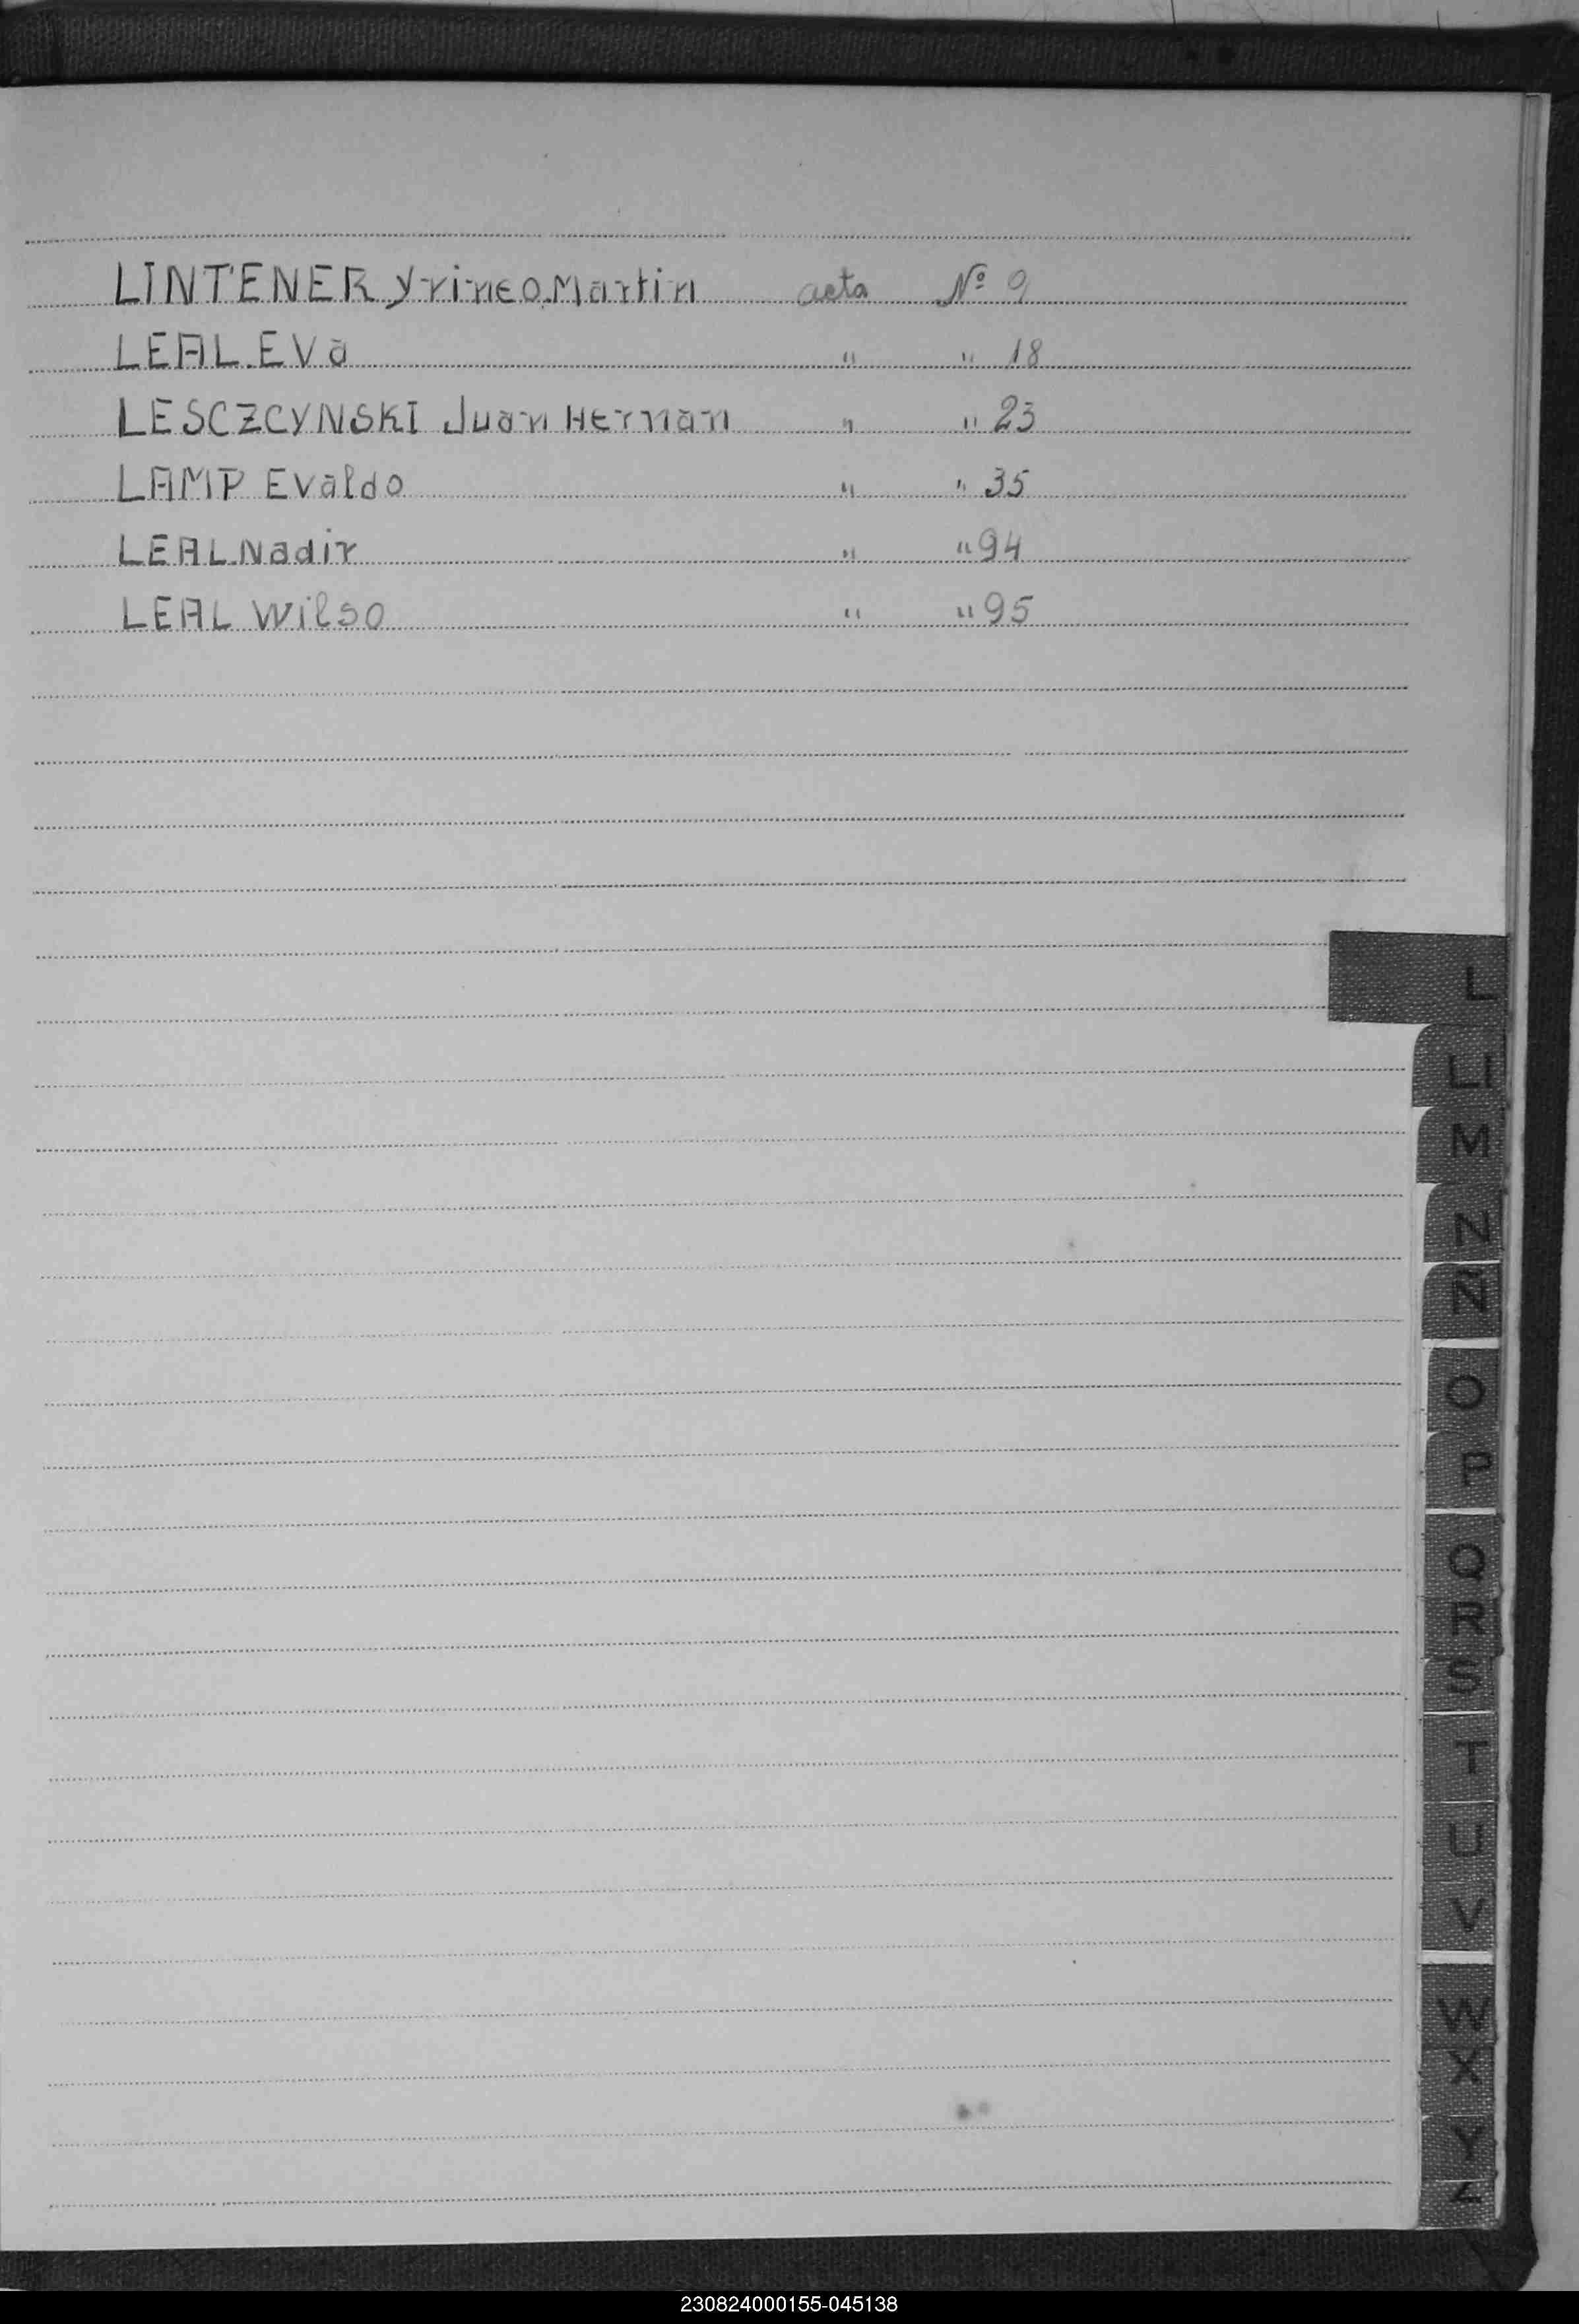 LINTENER Yrineo Martin acta Nº 9
LEAL EVa " " 18
LESCZCYNSKI Juan Hernan " " 23
LAMP Evaldo " " 35
LEAL Nadir " " 94
LEAL Wilso " " 95
L
LL
M
N
Ñ
O
P
Q
R
S
T
U
V
W
X
Y
Z
230824000155-045138